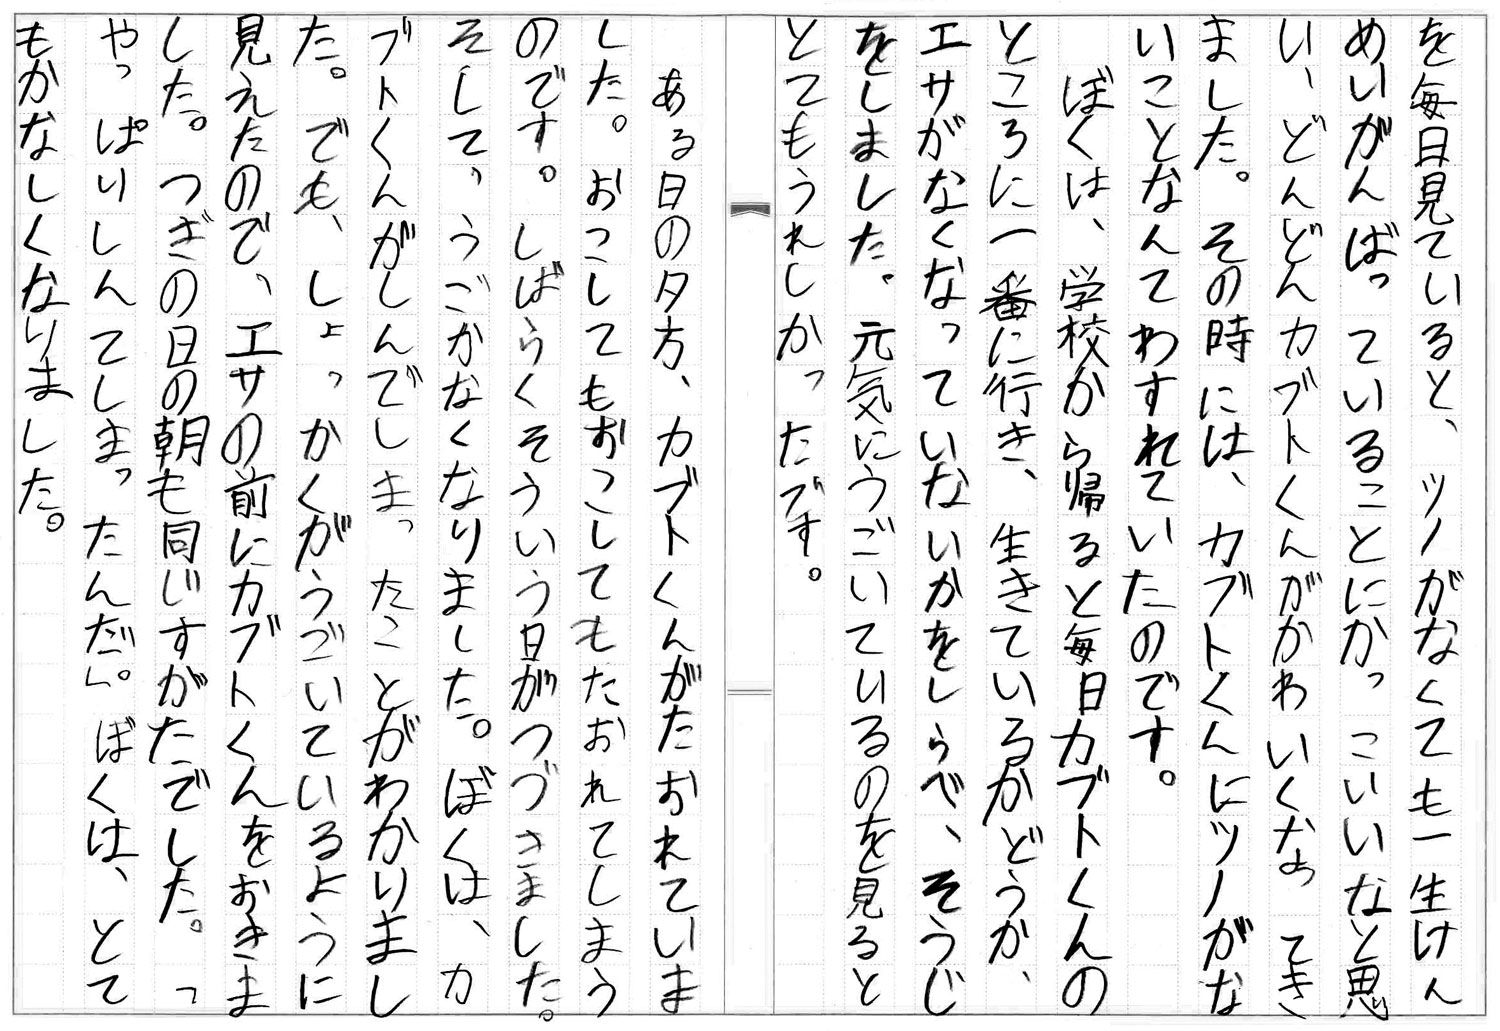 を毎日見ていると、ツノがなくても一生けん
めいがんばっていることにかっこいいなと思
い、どんどんカブトくんがかわいくなってき
ました。その時には、カブトくんにツノがな
いことなんてわすれていたのです。
ぼくは、学校から帰ると毎日カブトくんの
ところに一番に行き、生きているかどうか、
エサがなくなっていないかをしらべ、そうじ
をしました。元気にうごいているのを見ると
とてもうれしかったです。
ある日の夕方、カブトくんがたおれていま
した。おこしてもおこしてもたおれてしまう
のです。しばらくそういう日がつづきました。
そして、うごかなくなりました。ぼくは、カ
ブトくんがしんでしまったことがわかりまし
た。でも、しょっかくがうごいているように
見えたので、エサの前にカブトくんをおきま
した。つぎの日の朝も同じすがたでした。「
やっぱりしんてしまったんだ」。ぼくは、とて
もかなしくなりました。